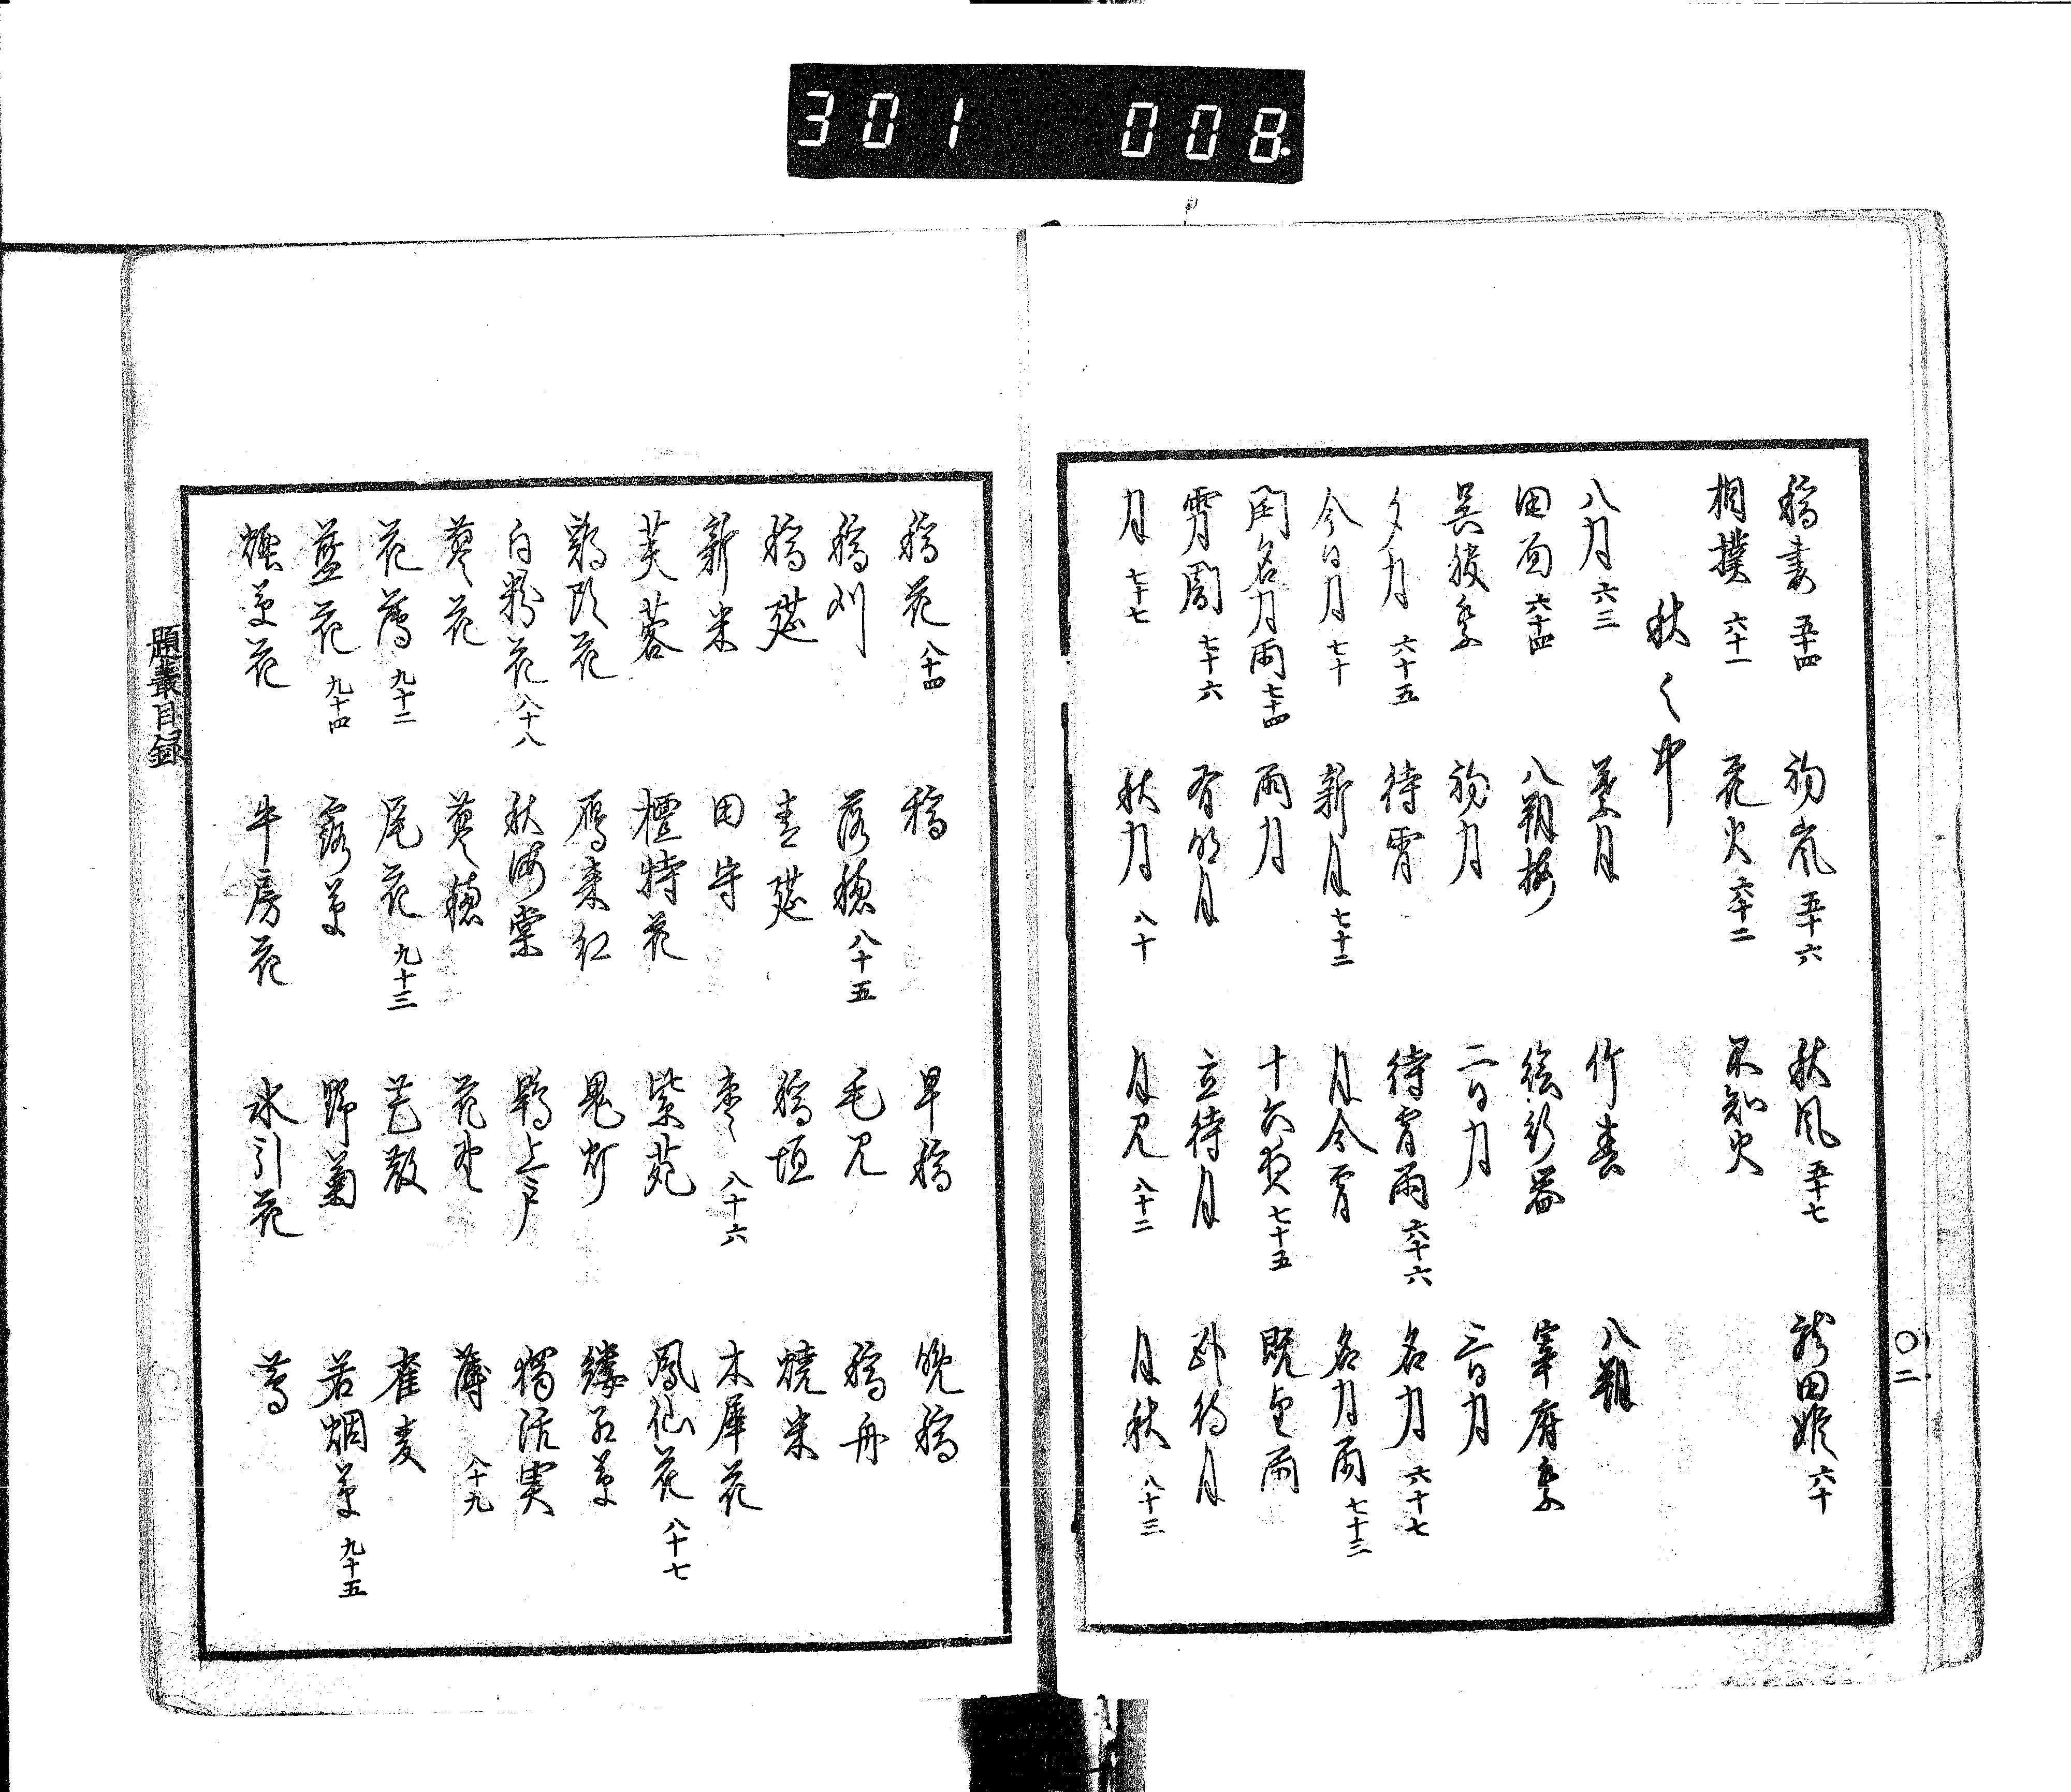 301 008
稲妻 五十四 初嵐 五十六 秋風 五十七 龍田姫 六十
相撲 六十一 花火 六十二 不知火
秋之中
八月 六三 葉月 竹春 八朔
田面 六十四 八朔梅 絵行器 宰府祭
呉服祭 初月 二日月 三日月
夕月 六十五 待宵 待宵雨 六十六 名月 六十七
今日月 七十 新月 七十二 月今宵 名月雨 七十三
閏名月雨 七十四 雨月 十六夜 七十五 既望雨
宵闇 七十六 有明月 立待月 臥待月
月 七十七 秋月 八十 月見 八十二 月秋 八十三
〇二
稲花 八十四 稲 早稲 晩稲
稲刈 落穂 八十五 毛見 稲舟
稲莚 青莚 稲垣 焼米
新米 田守 棗 八十六 木犀花
芙蓉 檀特花 紫苑 鳳仙花 八十七
鶏頭花 雁来紅 鬼灯 縷紅草
白粉花 八十八 秋海棠 鶴上戸 独活実
蓼花 蓼穂 花野 薄 八十九
花薄 九十二 尾花 九十三 芒散 雀麦
藍花 九十四 露草 野菊 若烟草 九十五
烟草花 牛房花 水引花 萱
題叢目録